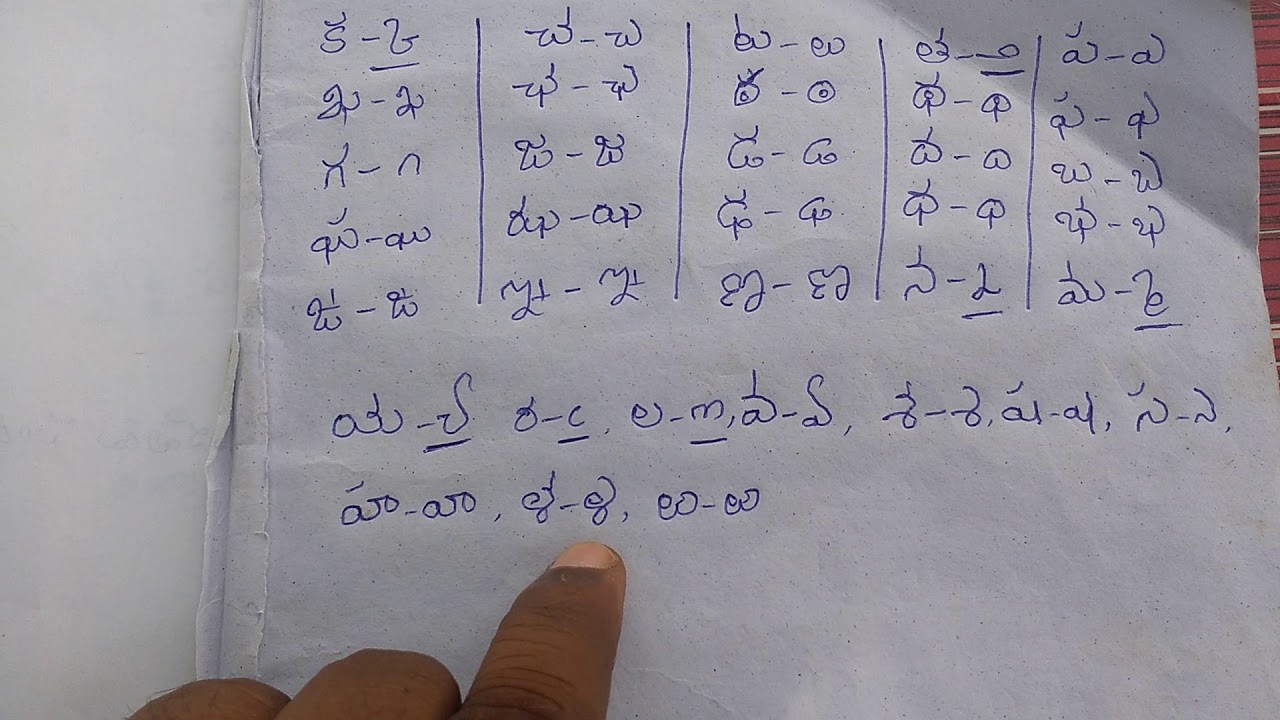 క - ్క | చ - ్చ | ట - ్ట | త - ్త | ప - ్ప
ఖ - ్ఖ | ఛ - ్ఛ | ఠ - ్ఠ | థ - ్థ | ఫ - ్ఫ
గ - ్గ | జ - ్జ | డ - ్డ | ద - ్ద | బ - ్బ
ఘ - ్ఘ | ఝ - ్ఝ | ఢ - ్ఢ | ధ - ్ధ | భ - ్భ
ఙ - ్ఙ | ఞ - ్ఞ | ణ - ్ణ | న - ్న | మ - ్మ
య - ్య ర - ్ర, ల - ్ల, వ - ్వ, శ - ్శ, ష - ్ష, స - ్స,
హ - ్హ, ళ - ్ళ, ఱ - ్ఱ